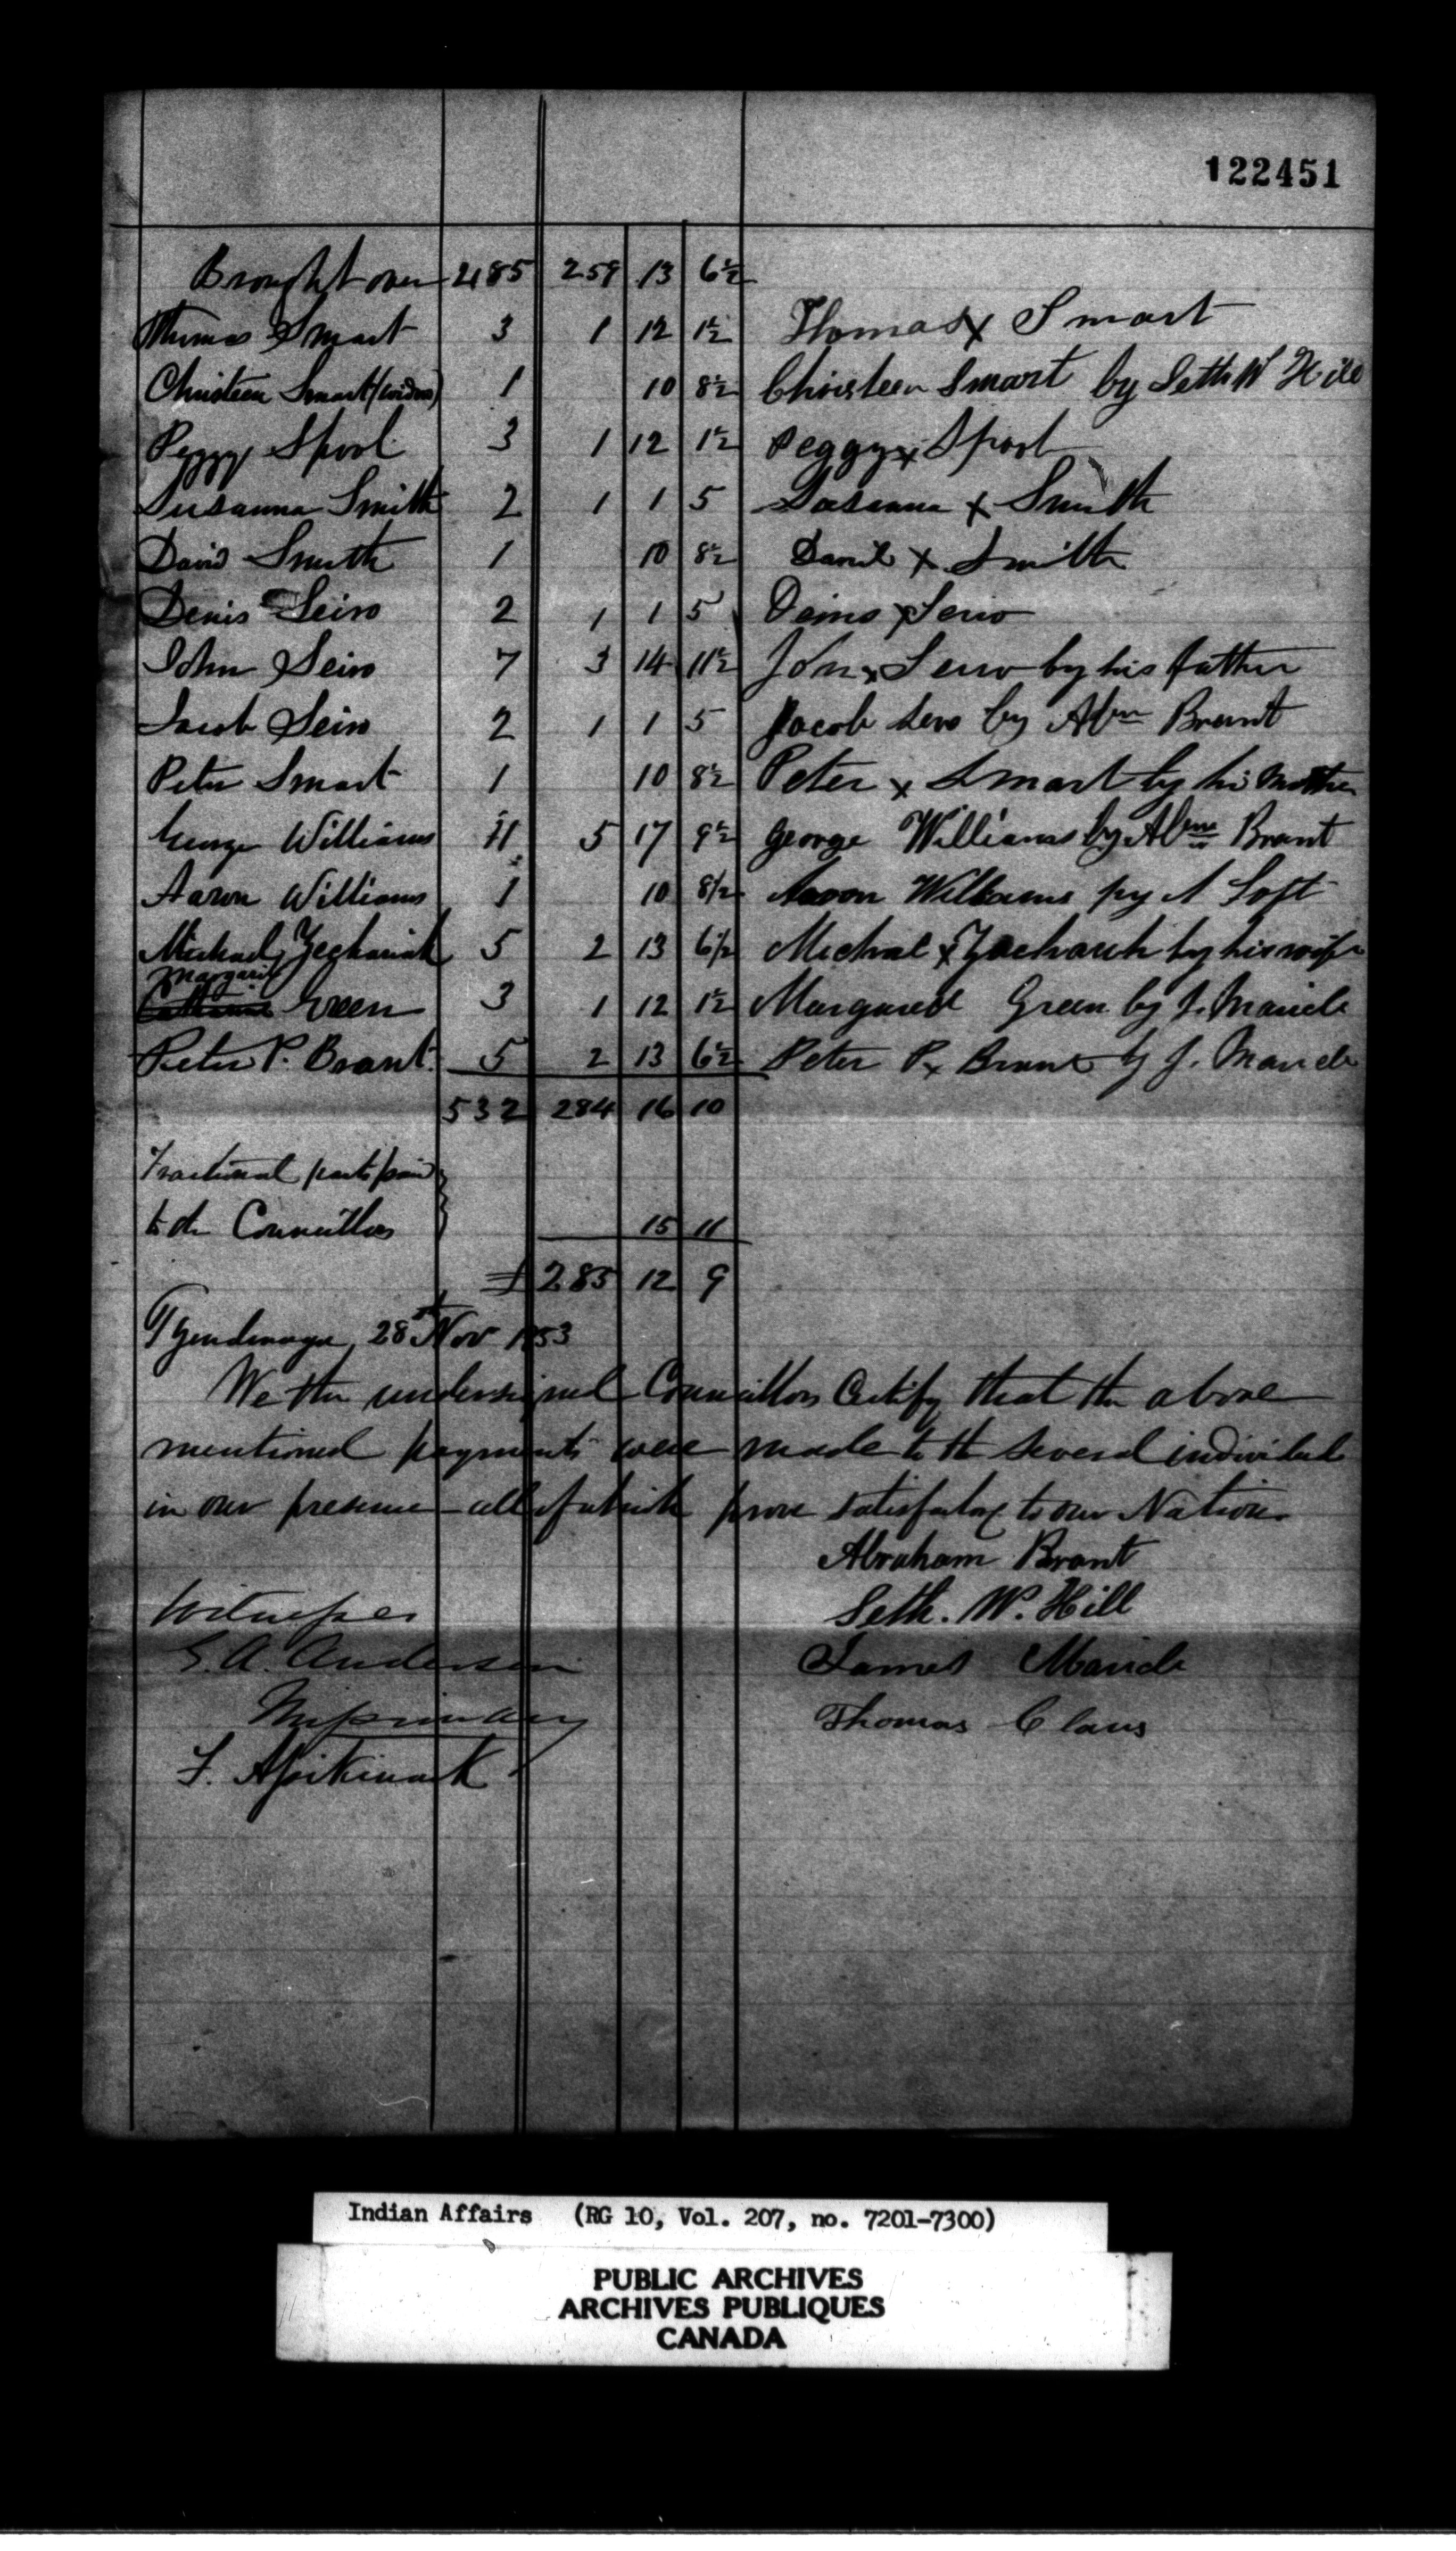 122451
Brought over 485 259 13 6½
Thomas Smart 3 1 12 1½ Thomas x Smart
Christeen Smart (widow) 1 10 8½ Christeen Smart by Seth W Hill
Peggy Sport 3 1 12 1½ Peggy x Sport
Susanna Smith 2 1 1 5 Susanna x Smith
David Smith 1 10 8½ David x Smith
Denis Seiro 2 1 1 5 x Sero
John Seiro 7 3 14 11½ John x Sero by his father
Jacob Seiro 2 1 1 5 Jacob Sero by Abm Brant
Peter Smart 1 10 8½ Peter x Smart by his Mother
George Williams 11 5 17 9½ George Williams by Abm Brant
Aaron Williams 1 10 8½ Aaron Williams py A Loft
Michael Zechariah 5 2 13 6½ Micheal x by his wife
Margaret
Green 3 1 12 1½ Margared Green by J. Maricle
Peter P. Brant 5 2 13 6½ Peter P x Brant by J. Maricle
532 284 16 10
Fractional parts paid
to the Councillors 15 11
£ 285 12 9
Tyendinaga, 28th Nov 1853
We the undersigned Councillors Certify that the above
mentioned payments were made to the several individuals
in our presence all of which prove satisfactory to our Nation.
Abraham Brant
Witnesses Seth. W. Hill
S. A. Anderson James Maricle
Missionary Thomas Claus
Indian Affairs (RG 10, Vol. 207, no. 7201-7300)
PUBLIC ARCHIVES
ARCHIVES PUBLIQUES
CANADA